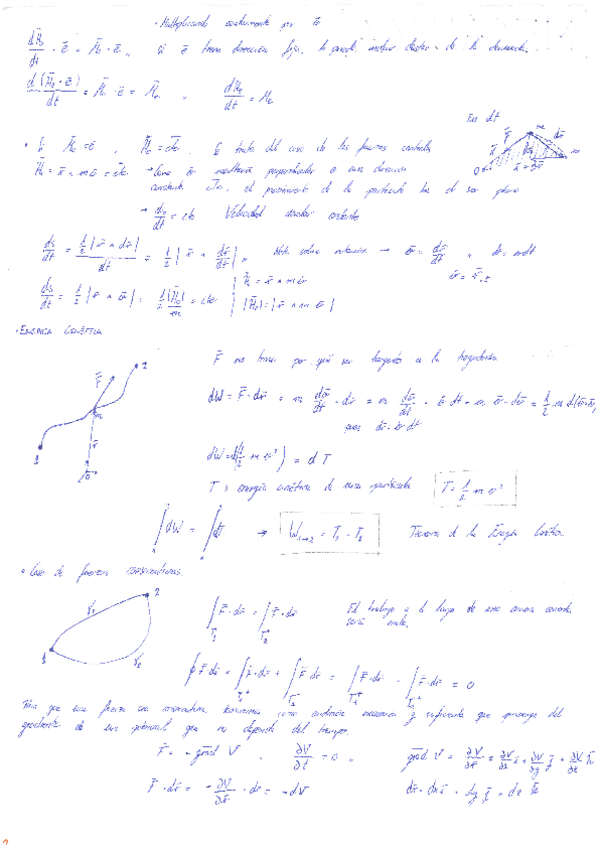 · Multiplicando escalarmente por ē
dH̄₀/dt · ē = M̄₀ · ē ,, si ē tiene dirección fija, lo puedo meter dentro de la derivada.
d(H̄₀ · ē)/dt = M̄₀ · ē = Mₑ ,, dHₑ/dt = Mₑ
En dt
· Si M̄₀ = ō , H̄₀ = cte. Es el caso de las fuerzas centrales
H̄₀ = r̄ ∧ m v̄ = cte
constante. el movimiento de la partícula ha de ser plano
→ dS/dt = cte Velocidad areolar constante
dS/dt = 1/2 |r̄ ∧ dr̄| / dt = 1/2 | r̄ ∧ dr̄/dt | ,, Nota sobre notación → v̄ = dr̄/dt ,,
dS/dt = 1/2 | r̄ ∧ v̄ | = 1/2 |H̄₀|/m = cte
H̄₀ = r̄ ∧ m v̄
|H̄₀| = | r̄ ∧ m v̄ |
· ENERGÍA CINÉTICA
F̄ no tiene por qué ser tangente a la trayectoria
dW = F̄ · dr̄ = m dv̄/dt · dr̄ = m dv̄/dt · v̄ dt = m v̄ · dv̄ = 1/2 m d(v̄·v̄)
dr̄ = v̄ dt
dW = d(1/2 m v²) = dT
T ≡ energía cinética de una partícula T = 1/2 m v²
∫ dW = ∫ dT → W₁→₂ = T₂ - T₁ Teorema de la Energía Cinética
· Caso de fuerzas conservativas
∫ F̄ · dr̄ = ∫ F̄ · dr̄ El trabajo a lo largo de una curva cerrada
será nulo.
∮ F̄ dr̄ = ∫ F̄ · dr̄ + ∫ F̄ dr̄ = ∫ F̄ · dr̄ - ∫ F̄ · dr̄ = 0
Para que una fuerza sea conservativa, tenemos como condición necesaria y suficiente que provenga del
gradiente de un potencial que no dependa del tiempo.
F̄ = - grad V , ∂V/∂t = 0 ,, grad V = ∂V/∂r̄ = ∂V/∂x ī + ∂V/∂y j̄ + ∂V/∂z k̄
F̄ · dr̄ = - ∂V/∂r̄ · dr̄ = - dV dr̄ = dx ī + dy j̄ + dz k̄